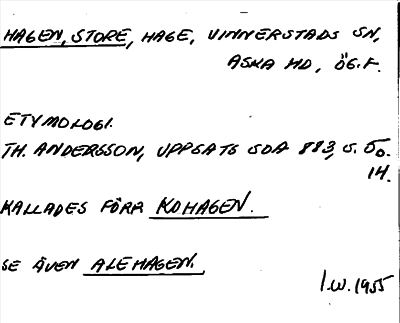 HAGEN, STORE, HAGE, VINNERSTADS SN,
ASKA HD, ÖG.F.
ETYMOLOGI.
TH. ANDERSSON, UPPSATS GDA 883, S. 50.
14.
KALLADES FÖRR KOHAGEN.
SE ÄVEN ALEHAGEN.
I.W. 1955